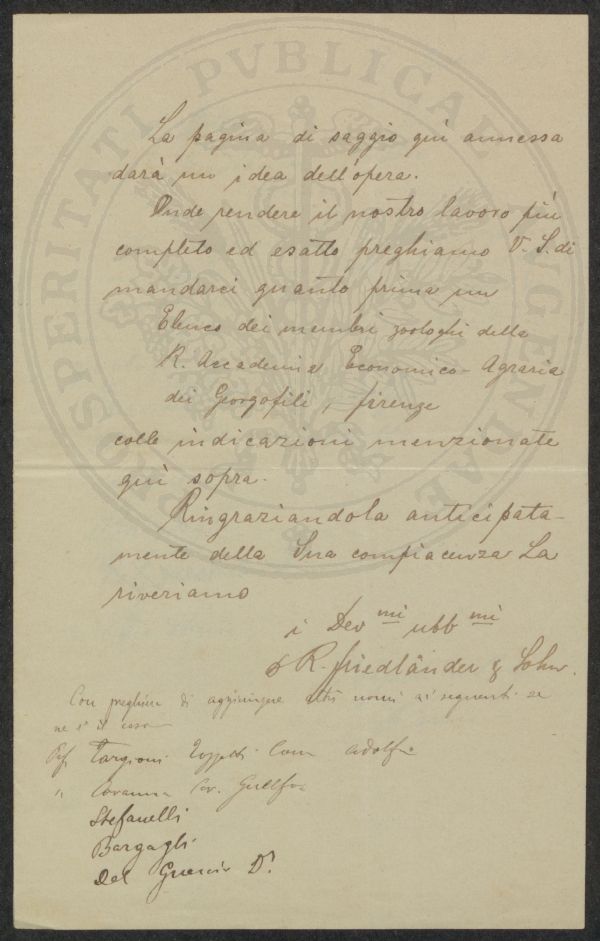 PROSPERITATI PVBLICAE AVGENDAE
La pagina di saggio quì annessa
darà un idea dell'opera.
Onde rendere il nostro lavoro più
completo ed esatto preghiamo V. S. di
mandarci quanto prima un
Elenco dei membri zoologhi della
R. Accademia Economico-Agraria
dei Georgofili, firenze
colle indicazioni menzionate
quì sopra.
Ringraziandola anticipata-
mente della Sua compiacenza La
riveriamo
i Dev mi ubb mi
R. Friedländer & Sohn.
Con preghiera di aggiungere altri nomi ai seguenti se
ne è il caso
Prof Targioni Tozzetti Com Adolfo
" Cav.
Stefanelli
Bargagli
Del Guercio Dr